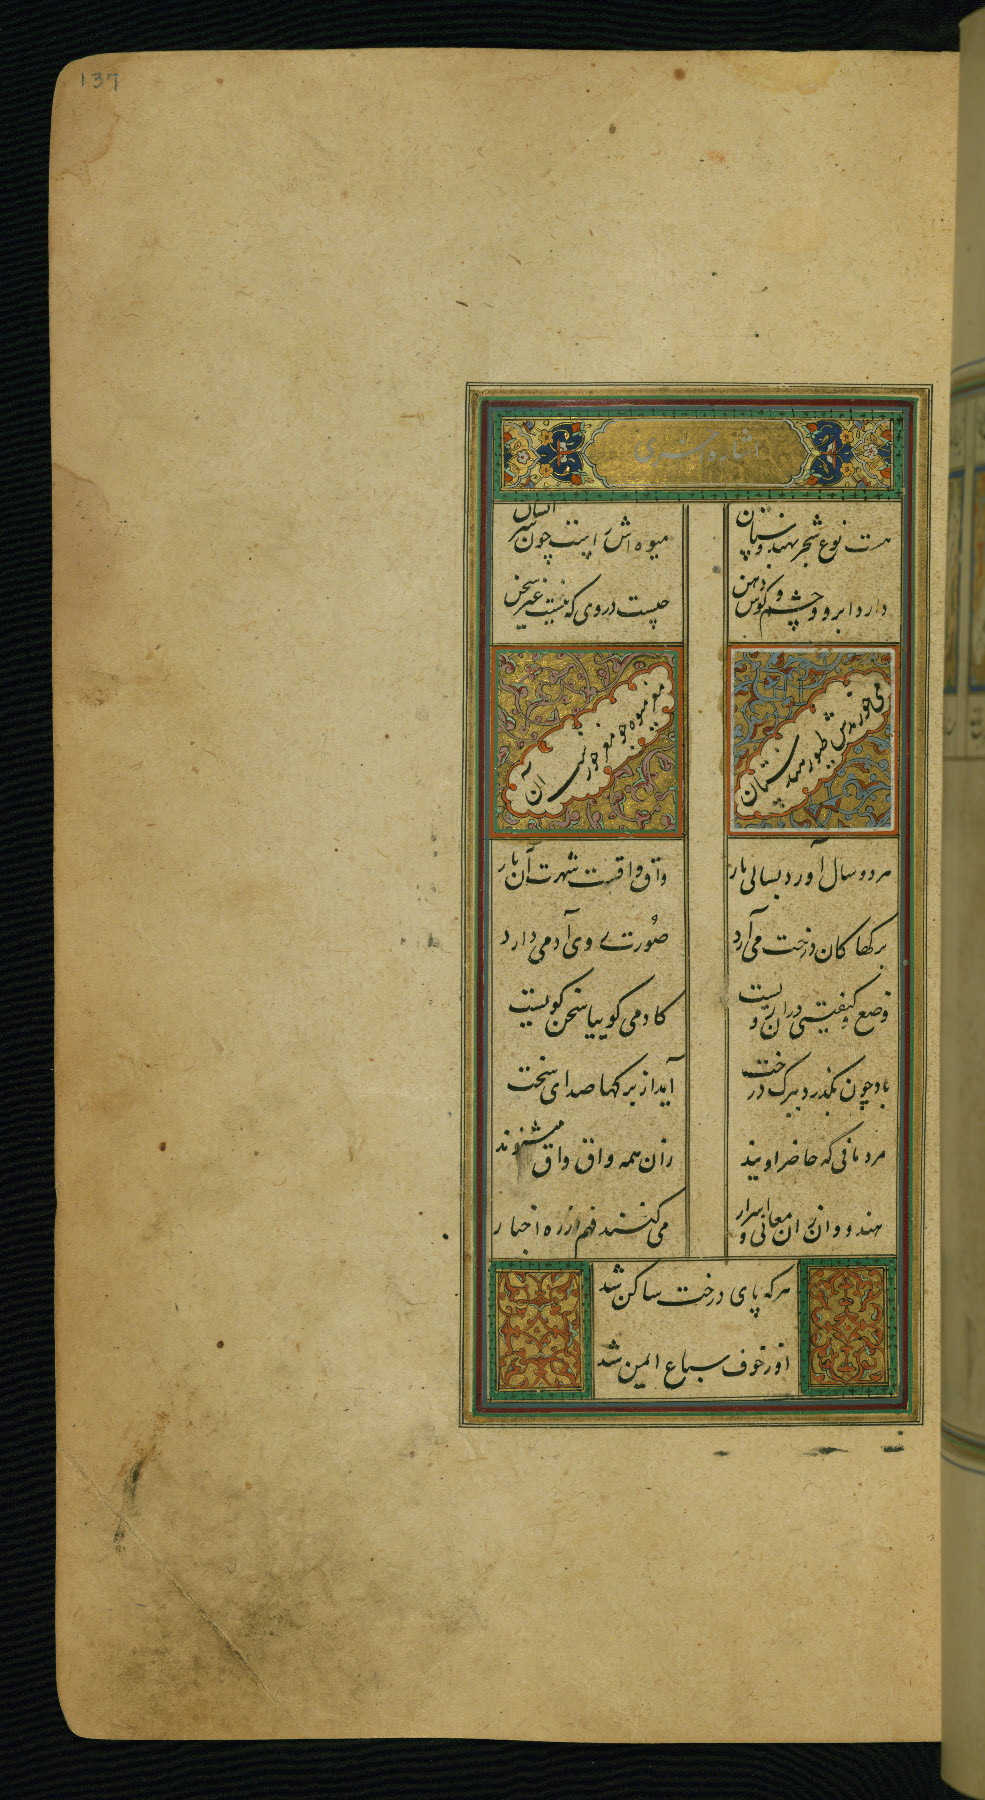 137
هست نوع شجر بهندوستان
میوه اش راست چون سر انسان
دارد ابرو و چشم و گوش و دهن
چیست در وی که نیست غیر سخن
می خورندش طیور هندستان
مغز میوه چو مغز جوز است آن
هر دو سال آورد بسالی بار
واق واقست شهرت آن بار
برکها کان درخت می آرد
صورت وی آدمی دارد
وضع و کیفیتی در آن
کادمی کوییا سخن کویست
باد چون بگذرد ببرک درخت
آید از برکها صدای سخت
مردمانی که حاضر اویند
زان همه واق واق میشنوند
هندووان زان معانی و اسرار
می کنند فهم از ره اخبار
هر که پای درخت ساکن شد
او ز خوف سباع ایمن شد